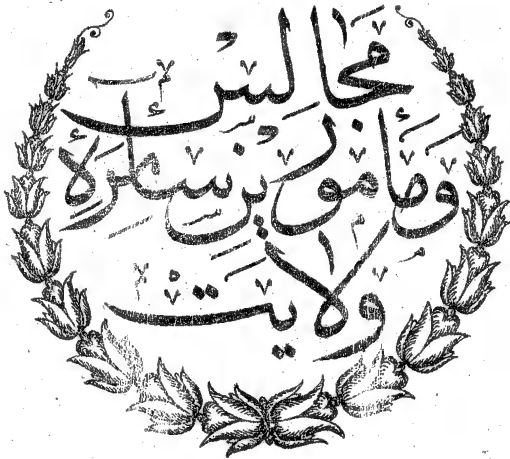 مجالس
ومأمورين سائرهٔ
ولايت